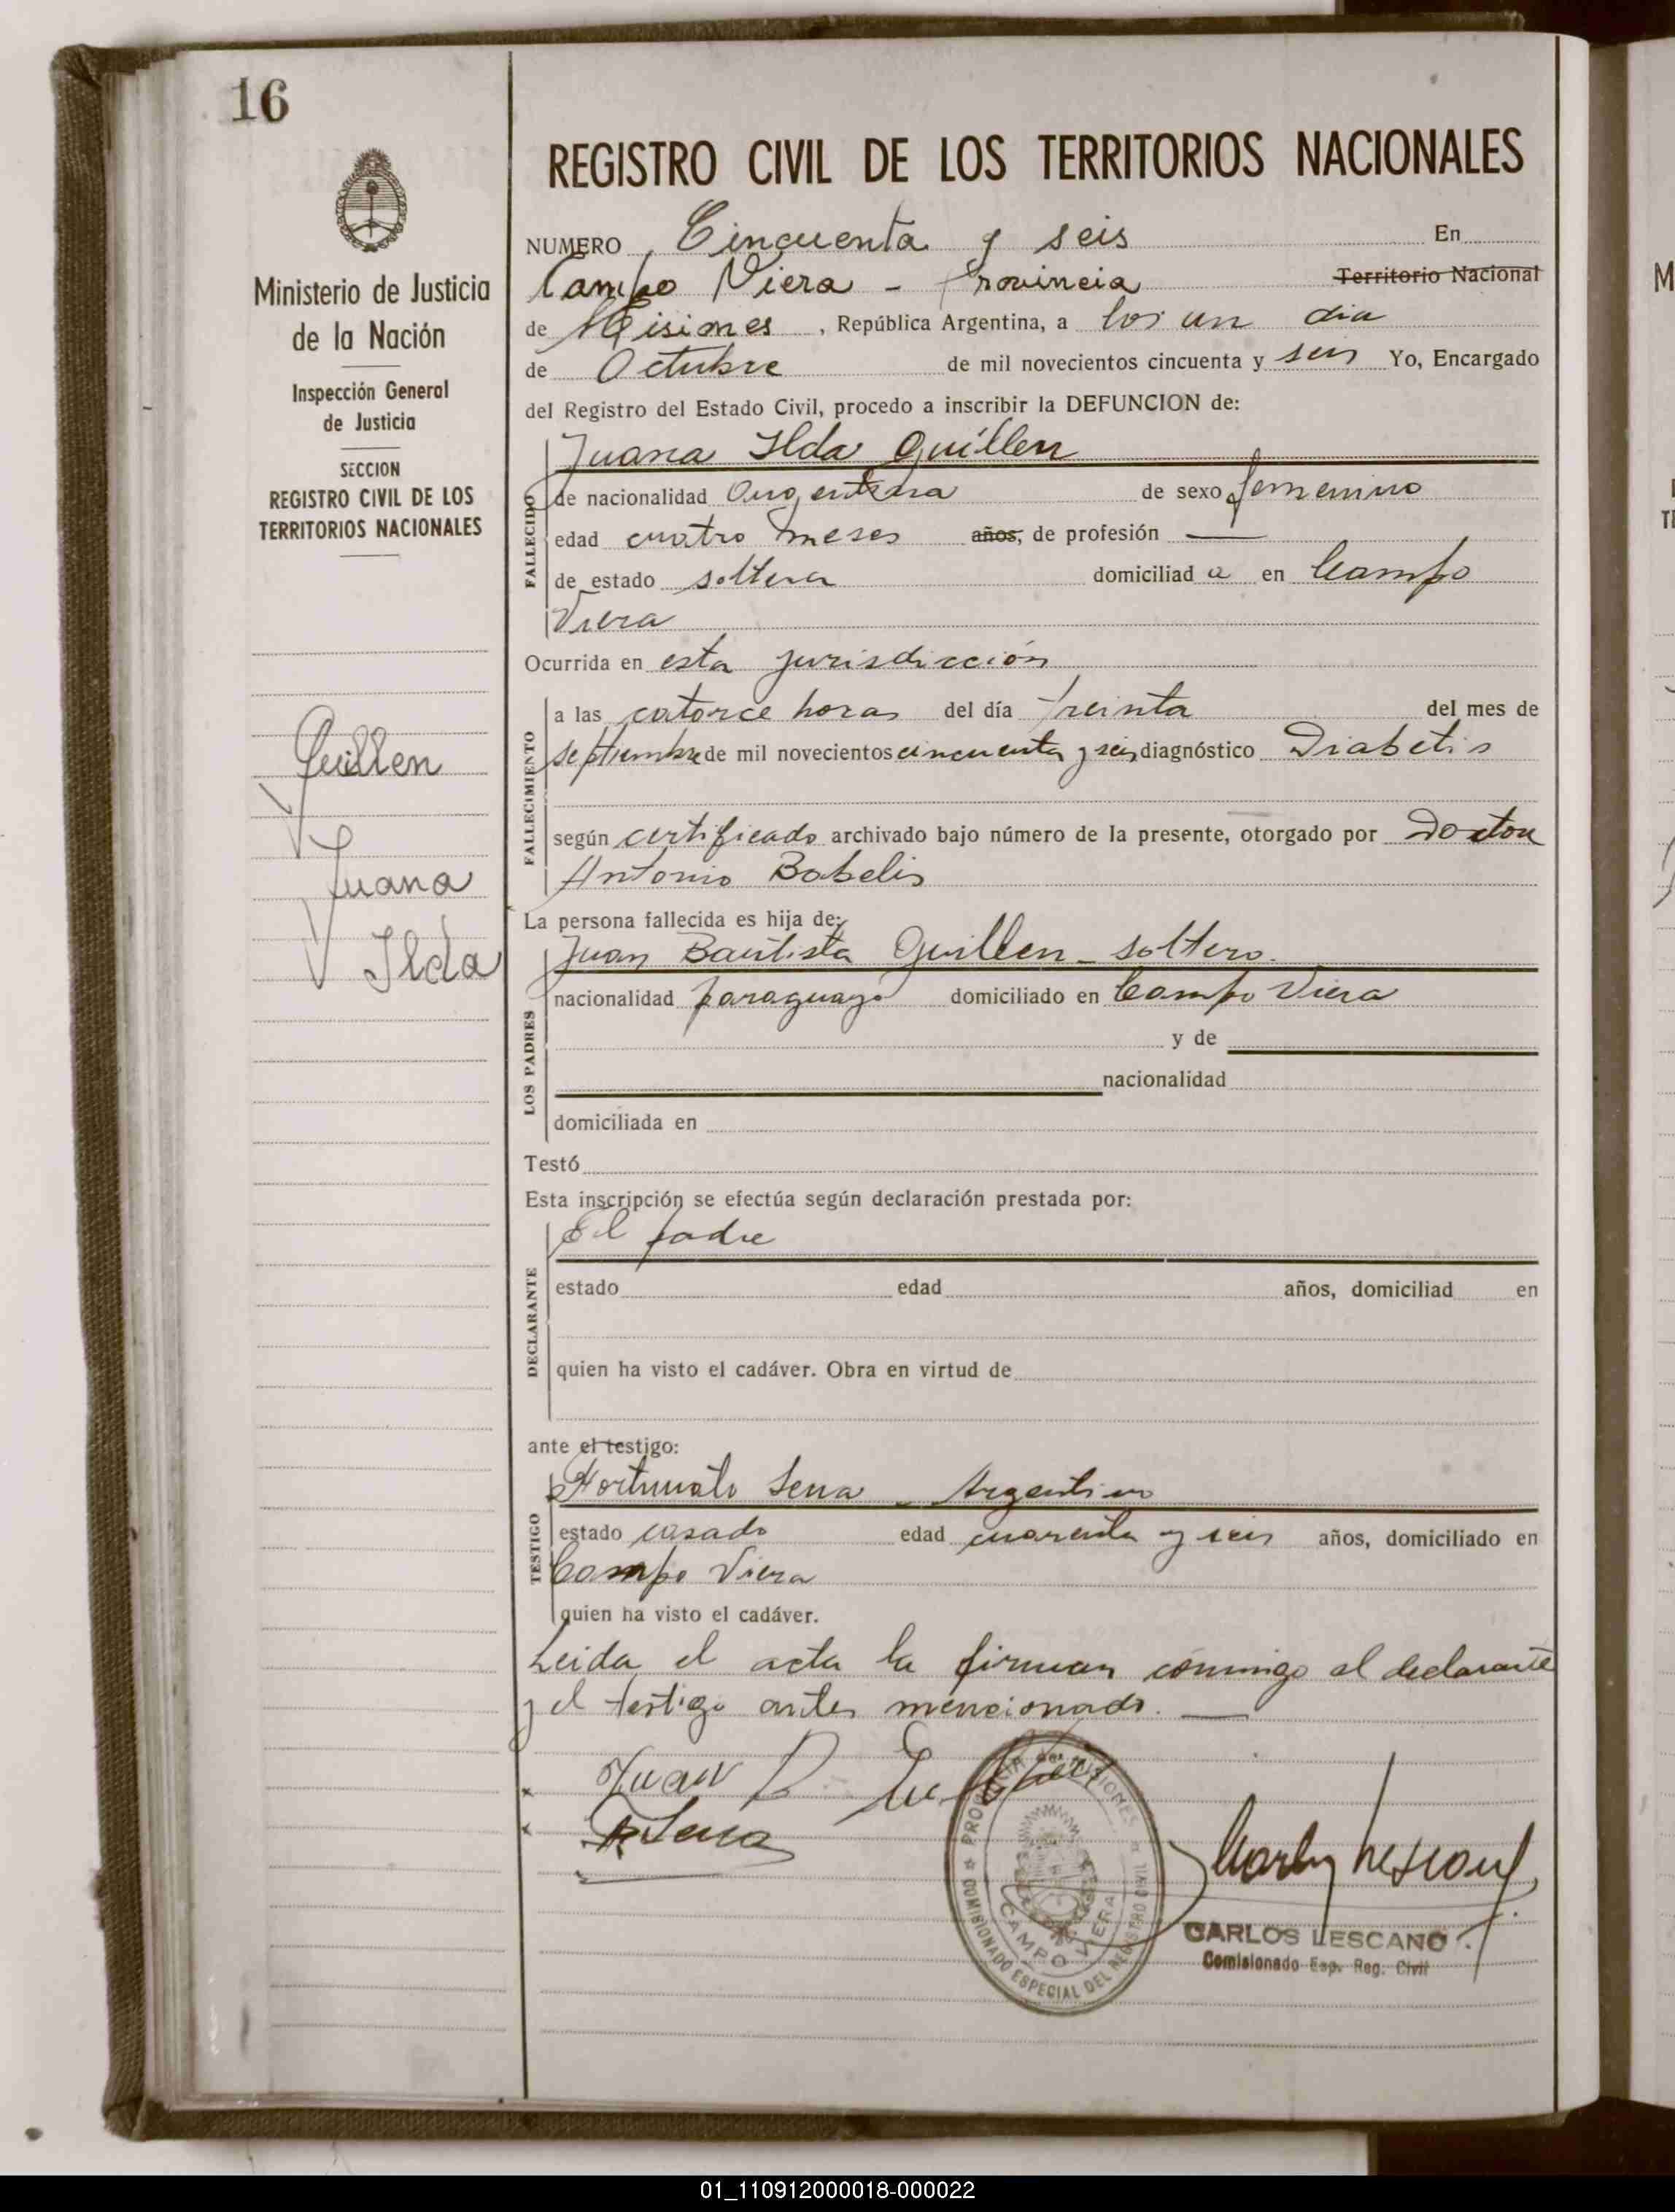 16
Ministerio de Justicia
de la Nación
Inspección General
de Justicia
SECCION
REGISTRO CIVIL DE LOS
TERRITORIOS NACIONALES
Guillen
Juana
Ilda
REGISTRO CIVIL DE LOS TERRITORIOS NACIONALES
NUMERO Cincuenta y seis En
Campo Viera - Provincia Territorio Nacional
de Misiones, República Argentina, a los un dia
de Octubre de mil novecientos cincuenta y seis Yo, Encargado
del Registro del Estado Civil, procedo a inscribir la DEFUNCION de:
Juana Ilda Guillen
FALLECIDO
de nacionalidad Argentina de sexo femenino
edad cuatro meses años, de profesión —
de estado soltera domiciliad a en Campo
Viera
Ocurrida en esta jurisdicción
FALLECIMIENTO
a las catorce horas del día treinta del mes de
septiembre de mil novecientos cincuenta y seis diagnóstico Diabetis
según certificado archivado bajo número de la presente, otorgado por Doctor
Antonio Babelis
La persona fallecida es hija de:
LOS PADRES
Juan Bautista Guillen - soltero.
nacionalidad paraguayo domiciliado en Campo Viera
y de
nacionalidad
domiciliada en
Testó
Esta inscripción se efectúa según declaración prestada por:
DECLARANTE
El padre
estado edad años, domiciliad en
quien ha visto el cadáver. Obra en virtud de
ante el testigo:
TESTIGO
Fortunato Sena - Argentino
estado casado edad cuarenta y seis años, domiciliado en
Campo Viera
quien ha visto el cadáver.
Leida el acta la firman conmigo el declarante
y el testigo antes mencionado. —
Juan B. Guillen
F. Sena
PROVINCIA DE MISIONES
COMISIONADO ESPECIAL DEL REGISTRO CIVIL
CAMPO VIERA
Carlos Lescano
CARLOS LESCANO
Comisionado Esp. Reg. Civil
01_110912000018-000022